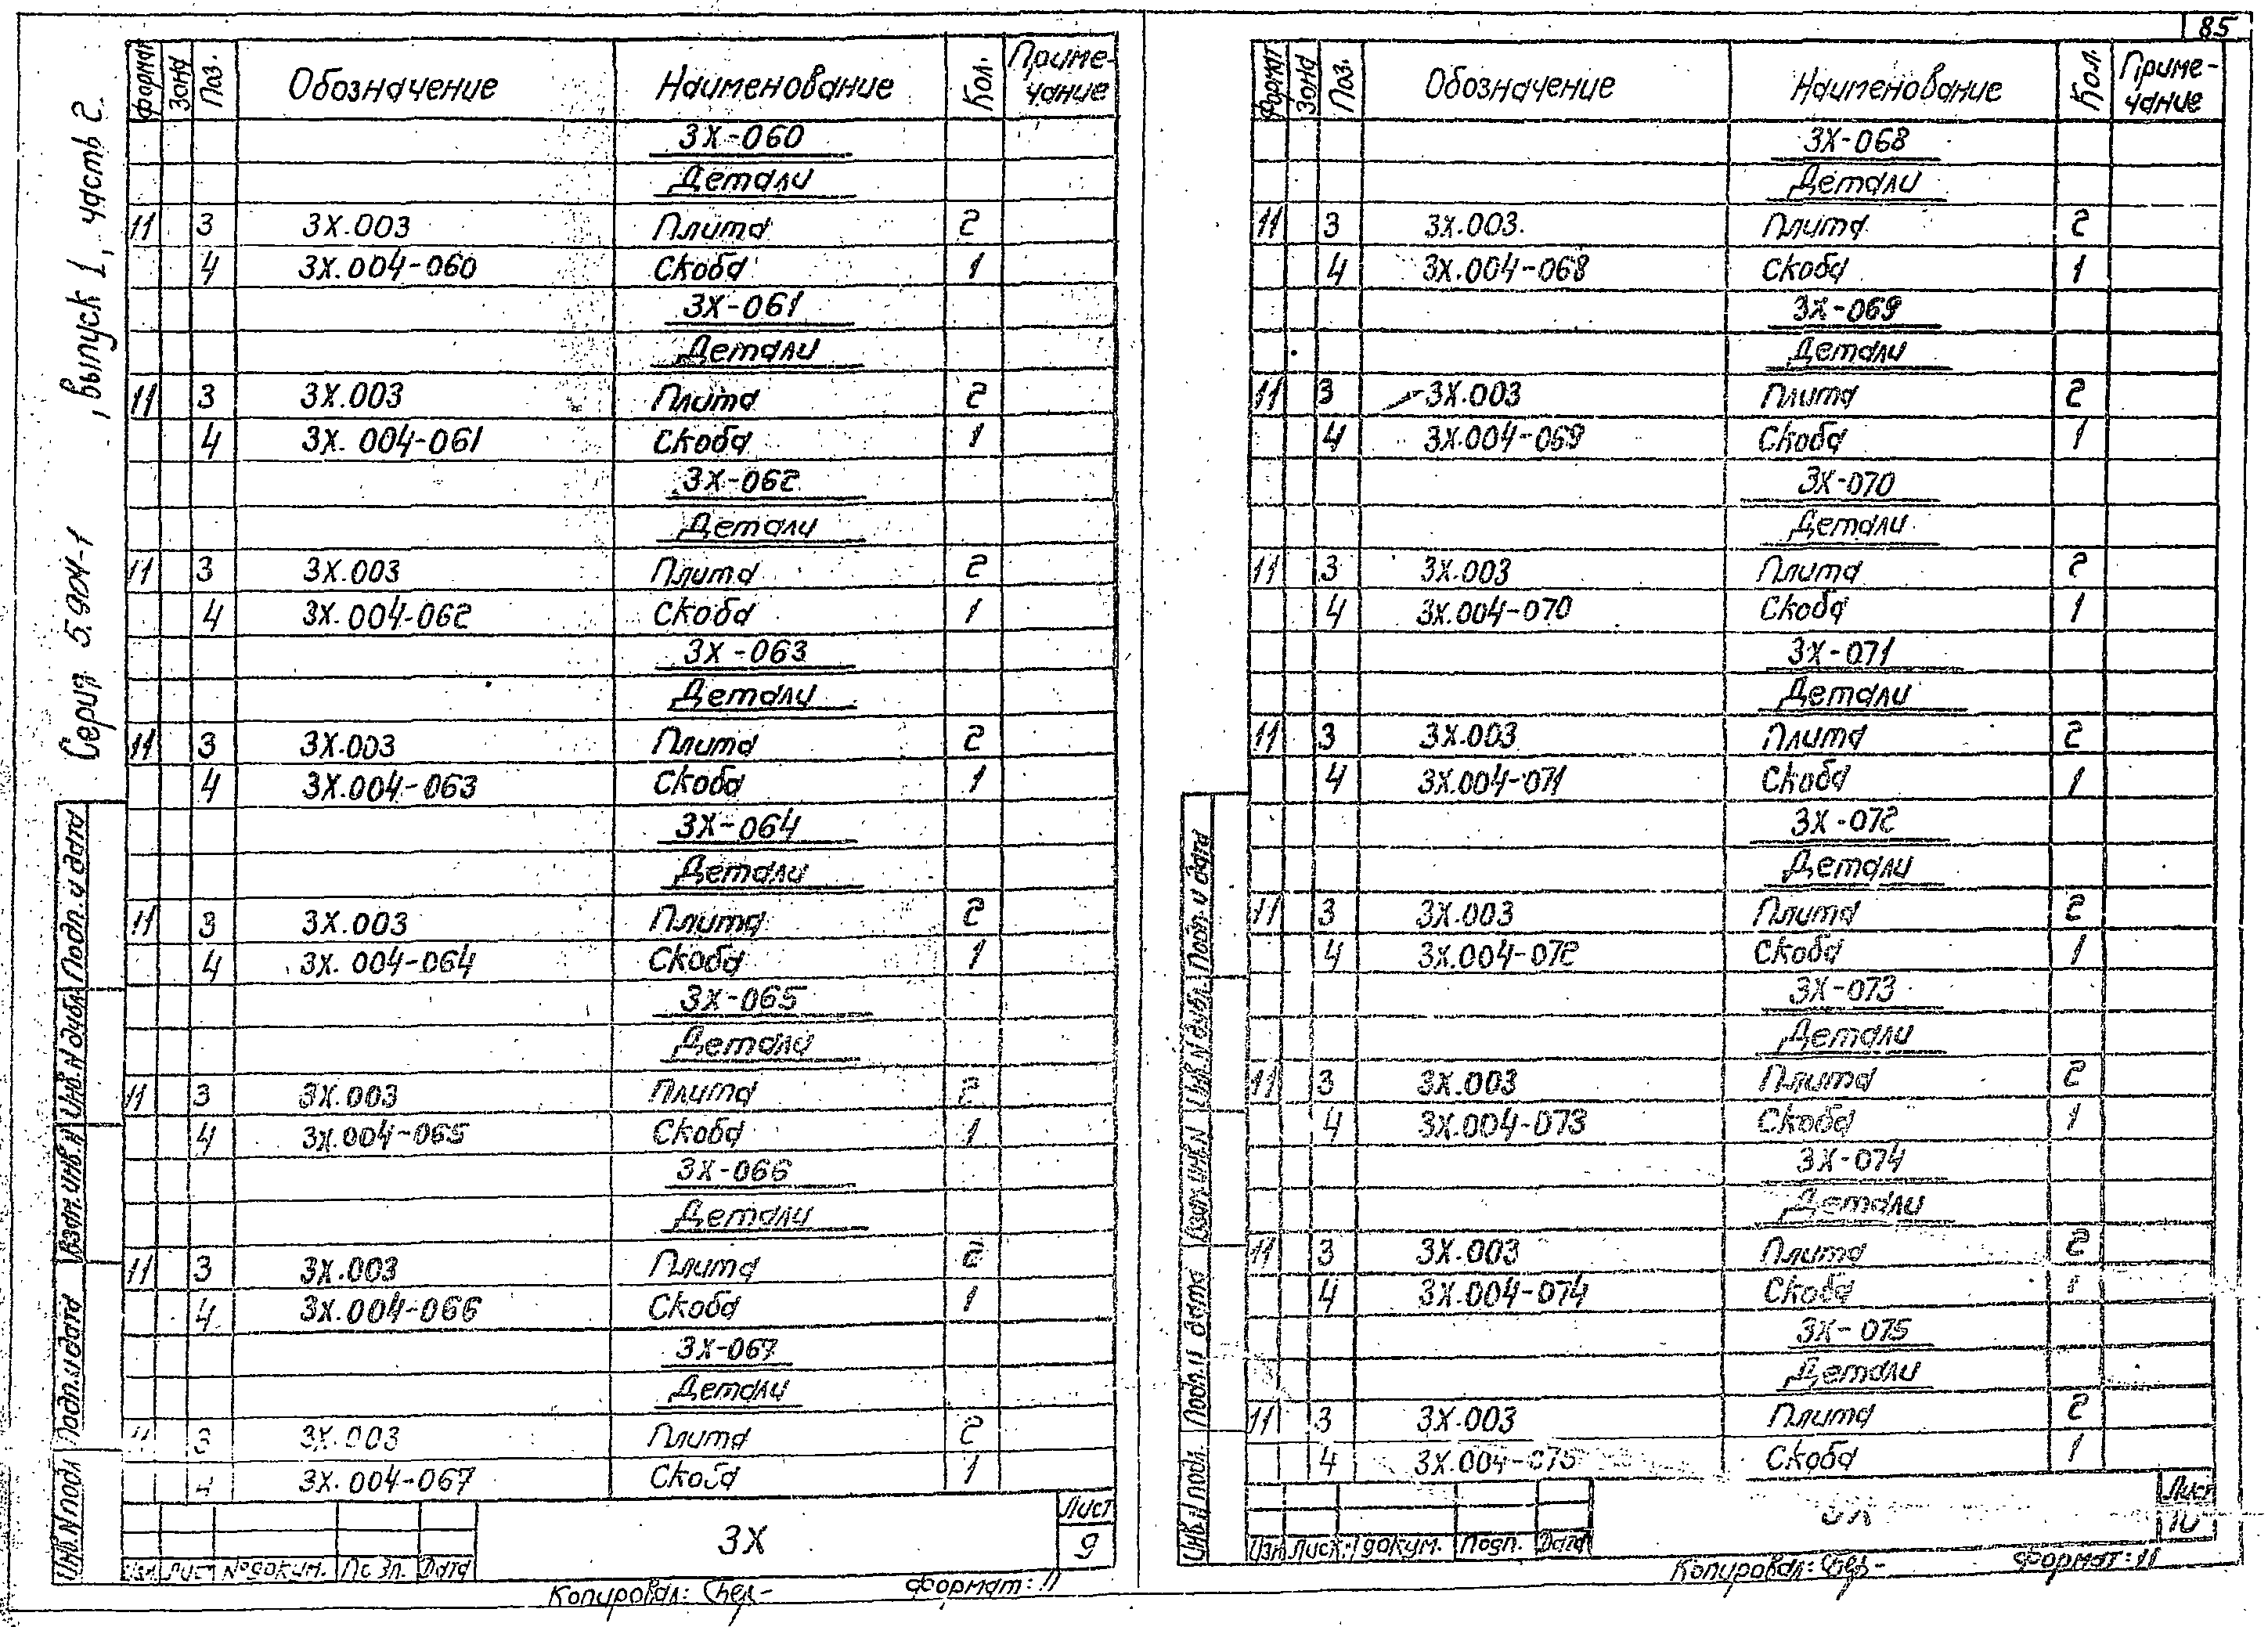 85
Серия 5.904-1 , выпуск 1, часть 2.
Формат Зона Поз. Обозначение Наименование Кол. Приме-чание
3X-060
Детали
11 3 3X.003 Плита 2
4 3X.004-060 Скоба 1
3X-061
Детали
11 3 3X.003 Плита 2
4 3X.004-061 Скоба 1
3X-062
Детали
11 3 3X.003 Плита 2
4 3X.004-062 Скоба 1
3X-063
Детали
11 3 3X.003 Плита 2
4 3X.004-063 Скоба 1
3X-064
Детали
11 3 3X.003 Плита 2
4 3X.004-064 Скоба 1
3X-065
Детали
11 3 3X.003 Плита 2
4 3X.004-065 Скоба 1
3X-066
Детали
11 3 3X.003 Плита 2
4 3X.004-066 Скоба 1
3X-067
Детали
11 3 3X.003 Плита 2
4 3X.004-067 Скоба 1
Инв.N подл. Подп. и дата Взам. инв. N Инв. N дубл. Подп. и дата
Изм. Лист № докум. Подп. Дата
3X
Лист
9
Копировал: Формат: 11
Формат Зона Поз. Обозначение Наименование Кол. Приме-чание
3X-068
Детали
11 3 3X.003 Плита 2
4 3X.004-068 Скоба 1
3X-069
Детали
11 3 3X.003 Плита 2
4 3X.004-069 Скоба 1
3X-070
Детали
11 3 3X.003 Плита 2
4 3X.004-070 Скоба 1
3X-071
Детали
11 3 3X.003 Плита 2
4 3X.004-071 Скоба 1
3X-072
Детали
11 3 3X.003 Плита 2
4 3X.004-072 Скоба 1
3X-073
Детали
11 3 3X.003 Плита 2
4 3X.004-073 Скоба 1
3X-074
Детали
11 3 3X.003 Плита 2
4 3X.004-074 Скоба 1
3X-075
Детали
11 3 3X.003 Плита 2
4 3X.004-075 Скоба 1
Инв. N подл. Подп. и дата Взам. инв. N Инв. N дубл. Подп. и дата
Изм Лист докум. Подп. Дата
3X
Лист
10
Копировал: Формат: 11